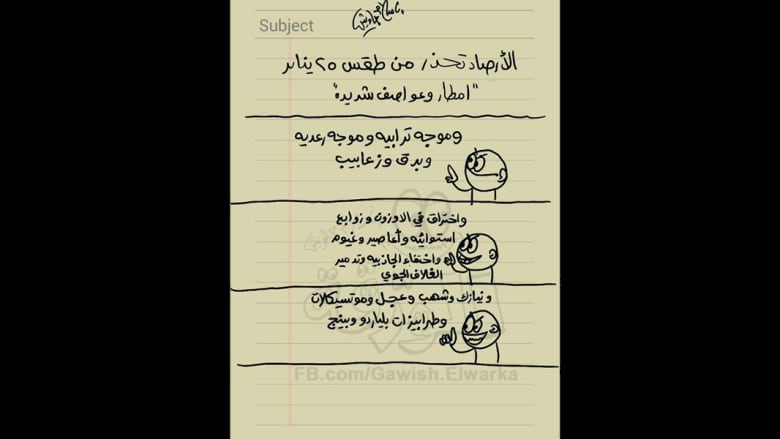 اسلام جاويش
Subject
الأرصاد تحذر من طقس ٢٥ يناير
"امطار وعواصف شديدة"
وموجه ترابيه وموجه رعديه
وبرق وزعابيب
واختراق في الاوزون وزوابع
استوائيه وأعاصير وغيوم
واختفاء الجاذبيه وتدمير
الغلاف الجوي
ونيازك وشهب وعجل وموتسيكلات
وطرابيزات بلياردو وبينج
FB.com/Gawish.Elwarka